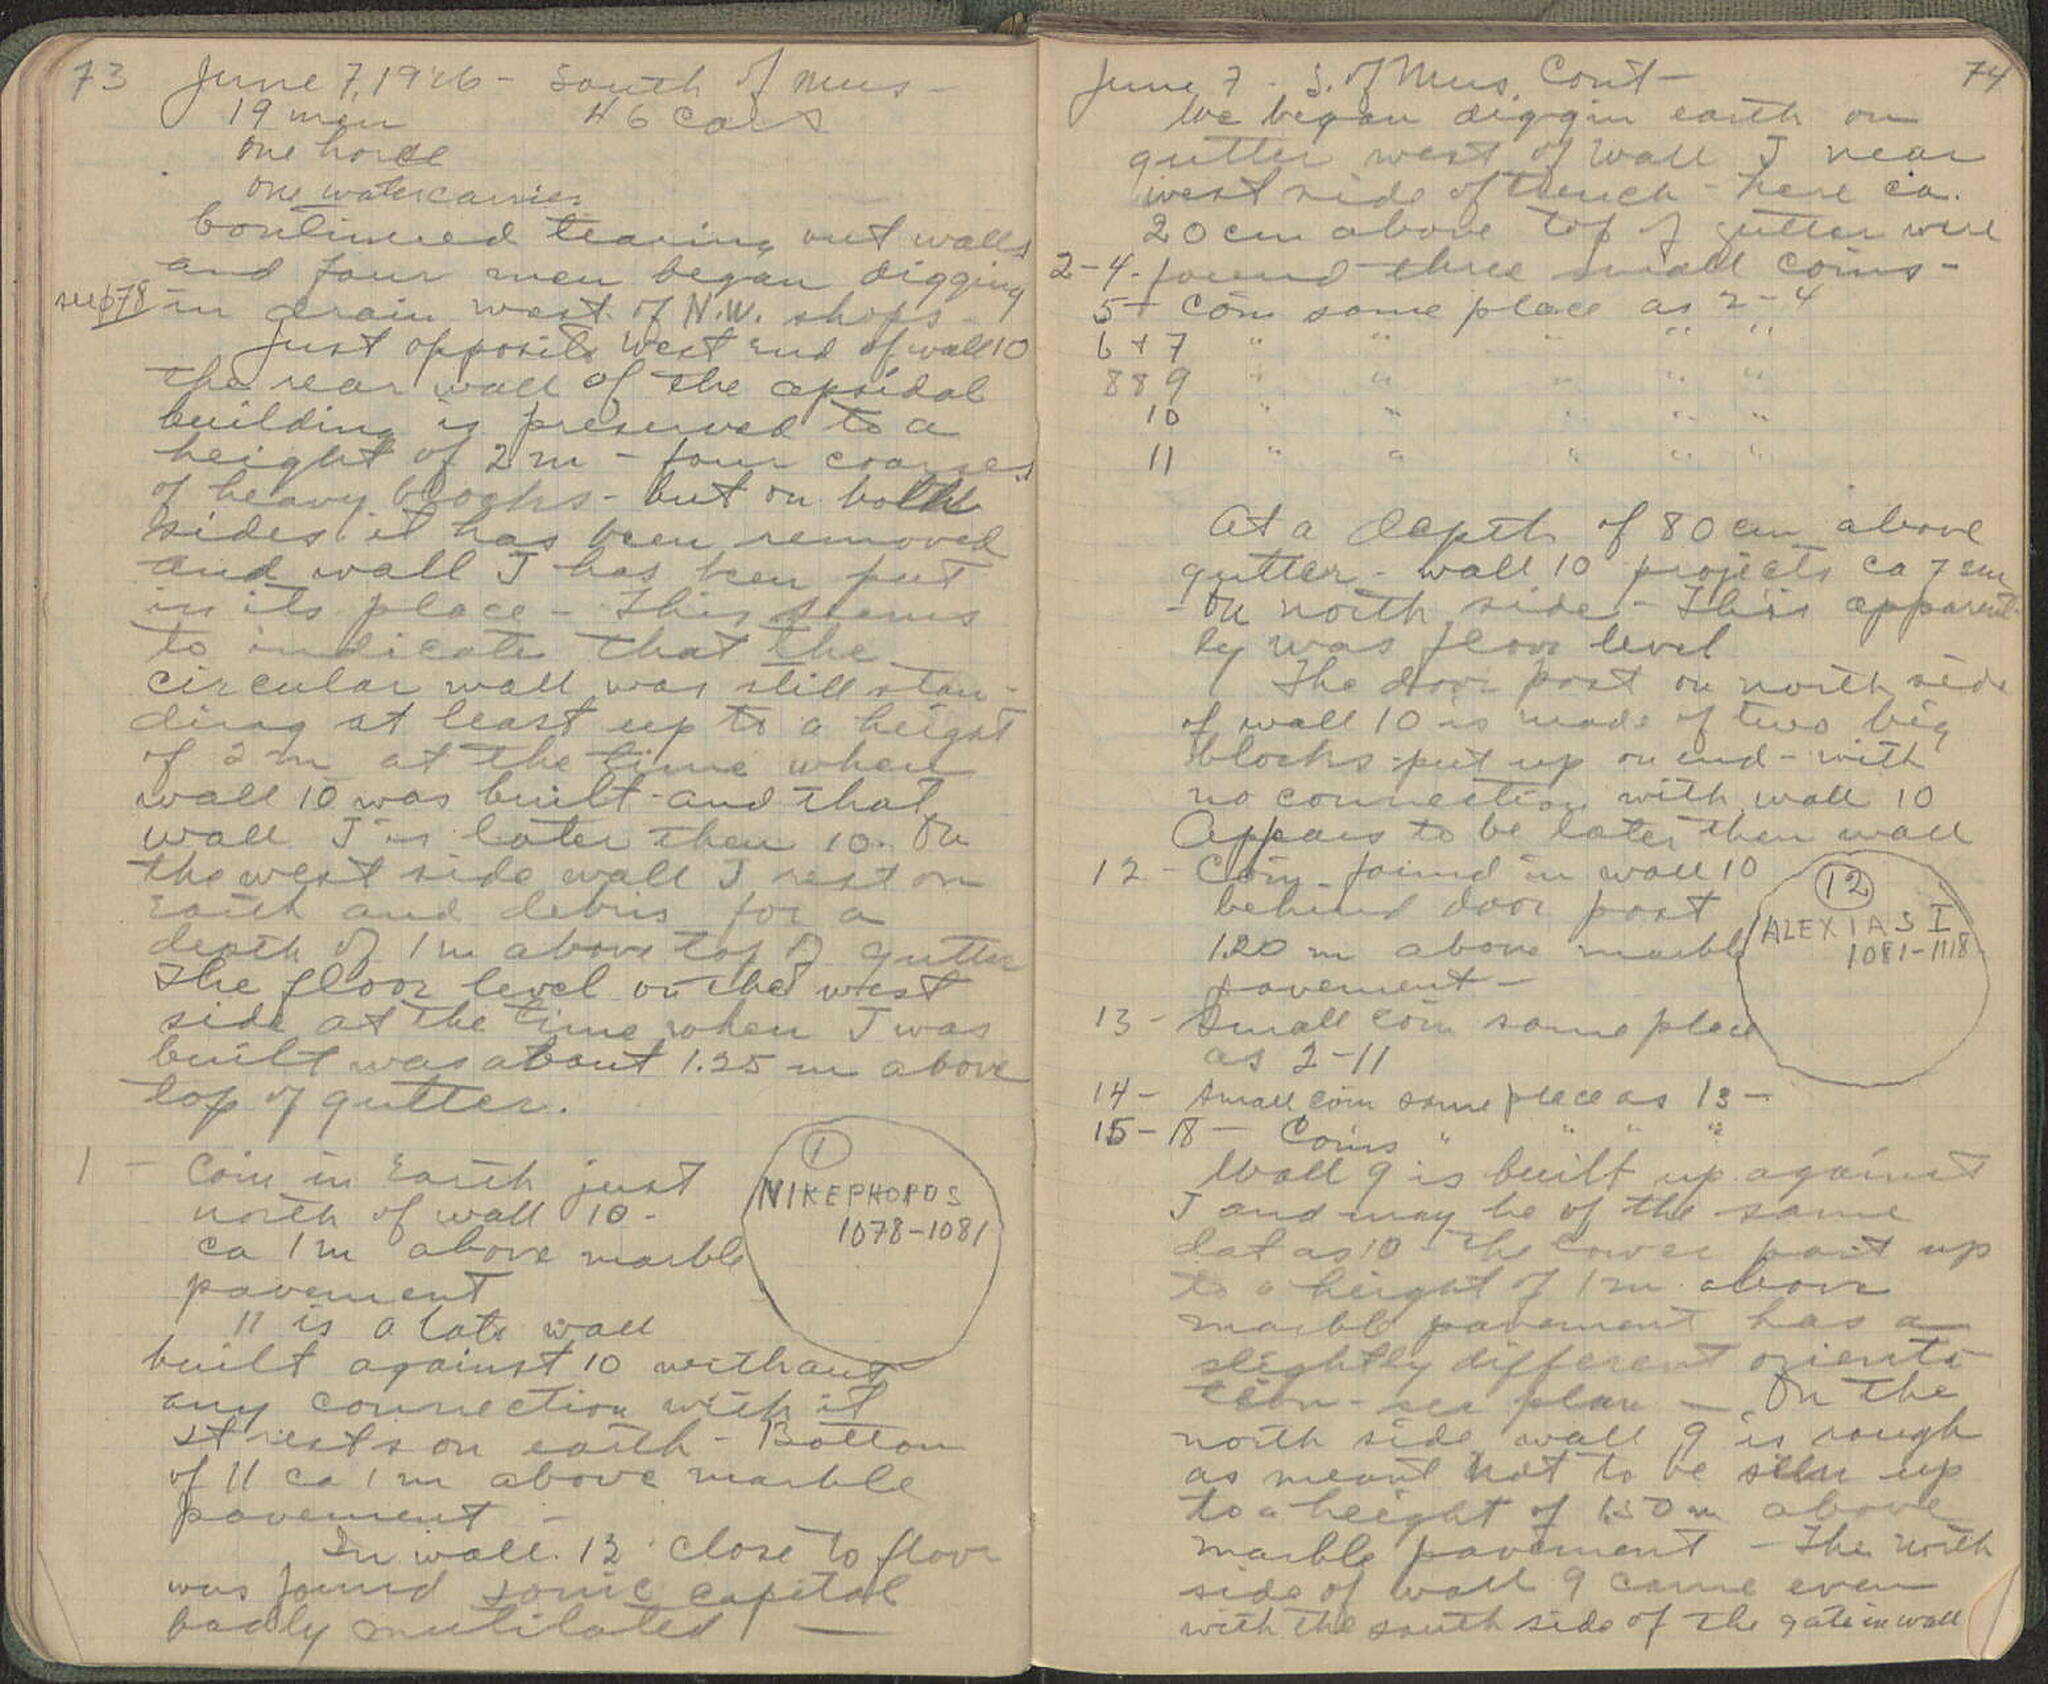 73 June 7, 1926 - South of Mus -
19 men 46 cars
one horse
one watercarrier
Continued tearing out walls
and four men began digging
see p 78 in drain west of N.W. shops -
Just opposite west end of wall 10
the rear wall of the apsidal
building is preserved to a
height of 2 m - four coarses
of heavy blocks - but on both
sides it has been removed
and wall J has been put
in its place - This seems
to indicate that the
circular wall was still stan-
ding at least up to a height
of 2 m at the time when
wall 10 was built - and that
wall J is later then 10. On
the west side wall J rest on
earth and debris for a
depth of 1 m above top of gutter
The floor level on the west
side at the time when J was
built was about 1.25 m above
top of gutter.
1 - Coin in Earth just
north of wall 10 -
ca 1 m above marble
pavement
① NIKEPHOROS
1078-1081
11 is a late wall
built against 10 without
any connection with it
It rests on earth - Bottom
of 11 ca 1 m above marble
pavement -
In wall 13 close to floor
was found Ionic capital
badly mutilated -
June 7 - S. of Mus. Cont - 74
We began diggin earth on
gutter west of Wall J near
west side of trench - here ca.
20 cm above top of gutter were
2-4- found three small coins -
5 - Coin same place as 2-4
6 + 7 " " " " "
8 & 9 " " " " "
10 " " " " "
11 " " " " "
At a depth of 80 cm above
gutter - wall 10 projects ca 7 cm
- on north side - This apparent-
ly was floor level
The door post on north side
of wall 10 is made of two big
blocks put up on end - with
no connection with wall 10
Appears to be later then wall
12 - Coin - found in wall 10
behind door post
1.20 m above marble
pavement -
⑫ ALEXIAS I
1081-1118
13 - Small coin same place
as 2-11
14 - Small coin same place as 13 -
15-18 - Coins " " " "
Wall 9 is built up against
J and may be of the same
dat as 10 - The lower part up
to a height of 1 m above
marble pavement has a
slightly different orienta-
tion - see plan - On the
north side wall 9 is rough
as meant not to be seen up
to a height of 1.50 m above
marble pavement - The north
side of wall 9 came even
with the south side of the gate in wall